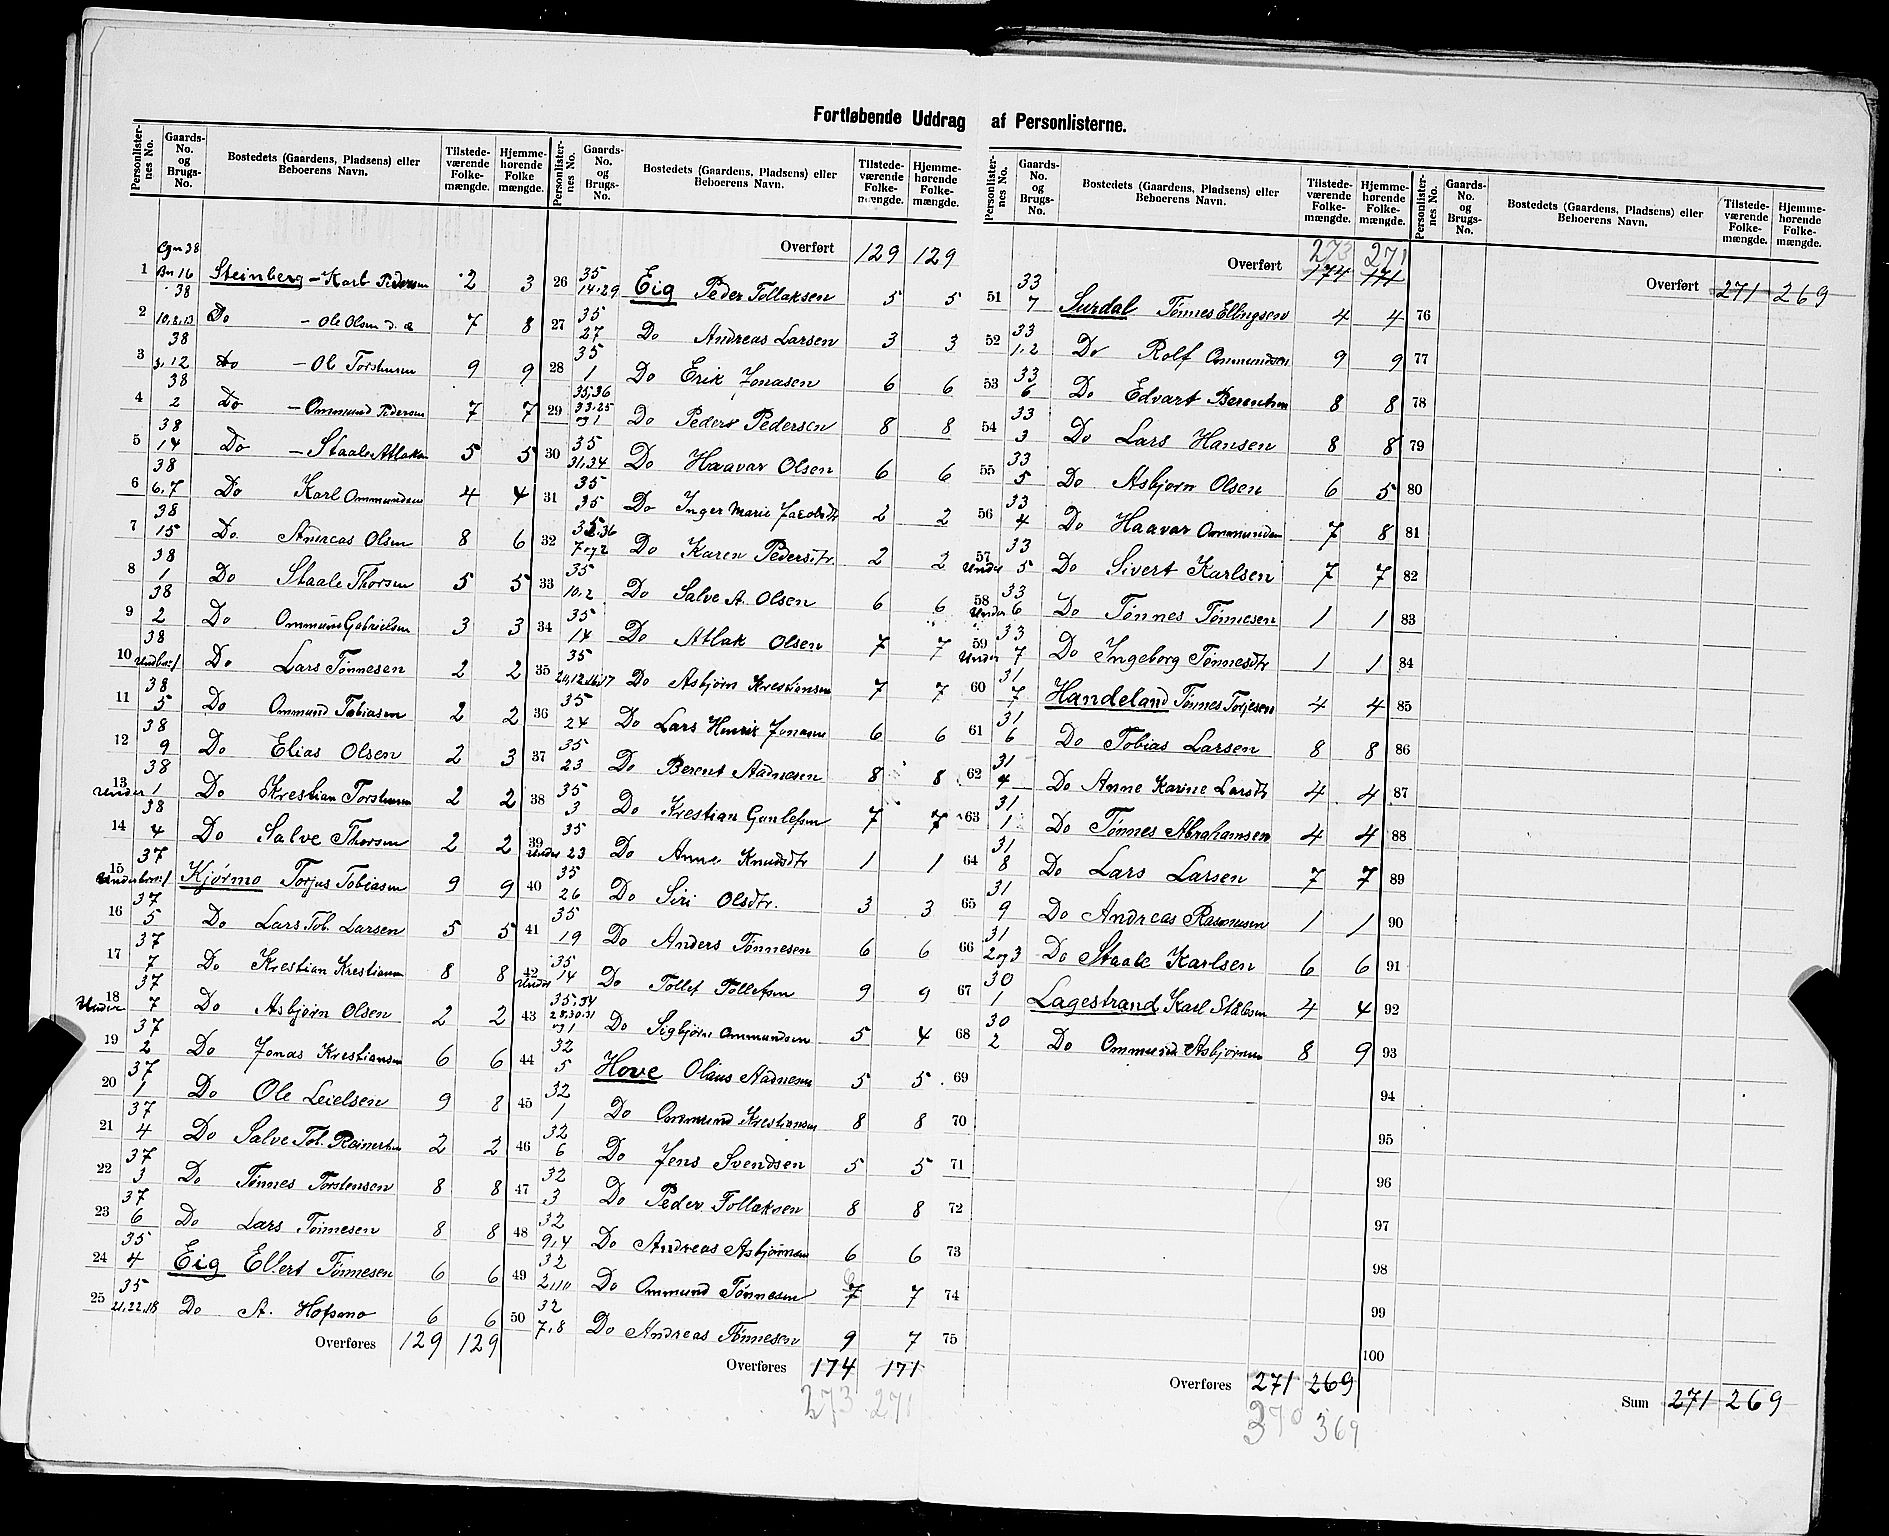 Fortløbende Uddrag af Personlisterne.
Personlister-nes No. Gaards-No. og Brugs-No. Bostedets (Gaardens, Pladsens) eller Beboerens Navn. Tilstede-værende Folke-mængde. Hjemme-hørende Folke mængde.
Gn 38
1 Bn 16 Steinberg - Karl Pedersen 2 3
38
2 10,8,13 Do - Ole Olsen d. æ 7 8
38
3 3,12 Do - Ol Torstensen 9 9
38
4 2 Do - Ommund Pedersen 7 7
38
5 14 Do - Staale Atlaksen 5 5
38
6 6,7 Do Karl Ommundsen 4 4
38
7 15 Do Andreas Olsen 8 6
38
8 1 Do Staale Thorsen 5 5
38
9 2 Do Ommund Gabrielsen 3 3
38
10 Do Lars Tønnesen 2 2
38
11 5 Do Ommund Tobiasen 2 2
38
12 9 Do Elias Olsen 2 3
38
13 Under 1 Do Krestian Torstensen 2 2
38
14 4 Do Salve Thorsen 2 2
37
15 Kjørmo Torjus Tobiasen 9 9
37
16 5 Do Lars Tob. Larsen 5 5
37
17 7 Do Krestian Krestiansen 8 8
37
18 Under 7 Do Asbjørn Olsen 2 2
37
19 2 Do Jonas Krestiansen 6 6
37
20 1 Do Ole Leielsen 9 8
37
21 4 Do Salve Tob. Reinertsen 2 2
37
22 3 Do Tønnes Torstensen 8 8
37
23 6 Do Lars Tønnesen 8 8
35
24 4 Eig Ellert Tønnesen 6 6
35
25 21,22,18 Do A. Hofsmo 6 6
Overføres 129 129
Personlister-nes No. Gaards-No. og Brugs-No. Bostedets (Gaardens, Pladsens) eller Beboerens Navn. Tilstede-værende Folke-mængde. Hjemme-hørende Folke-mængde.
Overført 129 129
35
26 14.29 Eig Peder Tollaksen 5 5
35
27 27 Do Andreas Larsen 3 3
35
28 1 Do Erik Jonasen 6 6
35,36
29 33.25 og 1 Do Peder Pedersen 8 8
35
30 31,34 Do Haavar Olsen 6 6
35
31 35 Do Inger Marie Jacobsdtr 2 2
35.36
32 7 og 2 Do Karen Pedersdtr 2 2
35
33 10,2 Do Salve A. Olsen 6 6
35
34 14 Do Atlak Olsen 7 7
35
35 Do Asbjørn Krestiansen 7 7
35
36 24 Do Lars Henrik Jonasen 6 6
35
37 23 Do Berent Aadnesen 8 8
35
38 3 Do Krestian Gunlefsen 7 7
35
39 Under 23 Do Anne Knudsdtr 1 1
35
40 26 Do Siri Olsdtr. 3 3
35
41 19 Do Anders Tønnesen 6 6
35
42 Under 14 Do Tollef Tollefsen 9 9
35,34
43 28,30,31 og 1 Do Sigbjørn Ommundsen 5 4
32
44 5 Hove Olaus Aadnesen 5 5
32
45 1 Do Ommund Krestiansen 8 8
32
46 6 Do Jens Svendsen 5 5
32
47 3 Do Peder Tollaksen 8 8
32
48 9,4 Do Andreas Asbjørnsen 6 6
32
49 2,10 Do Ommund Tønnesen 7 7
32
50 7,8 Do Andreas Tønnesen 9 7
Overføres 174 171
273 271
Personlister-nes No. Gaards-No. og Brugs-No. Bostedets (Gaardens, Pladsens) eller Beboerens Navn. Tilstede-værende Folke-mængde. Hjemme-hørende Folke-mængde.
273 271
Overført 174 171
33
51 7 Surdal Tønnes Ellingsen 4 4
33
52 1,2 Do Rolf Ommundsen 9 9
33
53 6 Do Edvart Berentsen 8 8
33
54 3 Do Lars Hansen 8 8
33
55 5 Do Asbjørn Olsen 6 5
33
56 4 Do Haavar Ommundsen 7 8
33
57 Under 5 Do Sivert Karlsen 7 7
33
58 Under 6 Do Tønnes Tønnesen 1 1
33
59 Under 7 Do Ingeborg Tønnesdtr 1 1
31
60 7 Handeland Tønnes Torjesen 4 4
31
61 6 Do Tobias Larsen 8 8
31
62 4 Do Anne Karine Larsdtr 4 4
31
63 1 Do Tønnes Abrahamsen 4 4
31
64 8 Do Lars Larsen 7 7
31
65 9 Do Andreas Rasmusen 1 1
31
66 2 og 3 Do Staale Karlsen 6 6
30
67 1 Lagestrand Karl Stålesen 4 4
30
68 2 Do Ommund Asbjørnsen 8 9
69
70
71
72
73
74
75
Overføres 271 269
370 369
Personlister-nes No. Gaards-No. og Brugs-No. Bostedets (Gaardens, Pladsens) eller Beboerens Navn. Tilstede-værende Folke-mængde. Hjemme-hørende Folke-mængde.
Overført 271 269
76
77
78
79
80
81
82
83
84
85
86
87
88
89
90
91
92
93
94
95
96
97
98
99
100
Sum 271 269